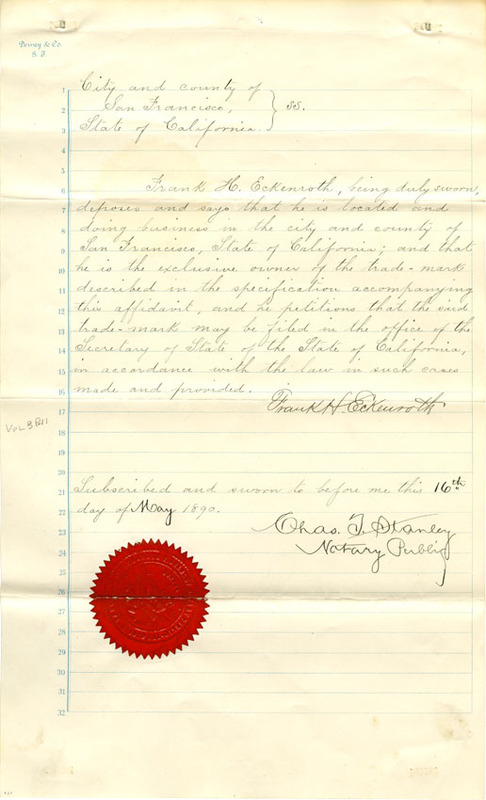 Dewey & Co.
S. F.
1 City and county of
2 San Francisco, } ss.
3 State of California.
4
5
6 Frank H. Eckenroth, being duly sworn,
7 deposes and says that he is located and
8 doing business in the city and county of
9 San Francisco, State of California; and that
10 he is the exclusive owner of the trade-mark
11 described in the specification accompanying
12 this affidavit, and he petitions that the said
13 trade-mark may be filed in the office of the
14 Secretary of State of the State of California,
15 in accordance with the law in such cases
16 made and provided.
Frank H Eckenroth
17
Vol 3
18
19
20
21 Subscribed and sworn to before me this 16th
22 day of May 1890.
23 Chas. T. Stanley
24 Notary Public
25
26
27
28
29
30
31
32